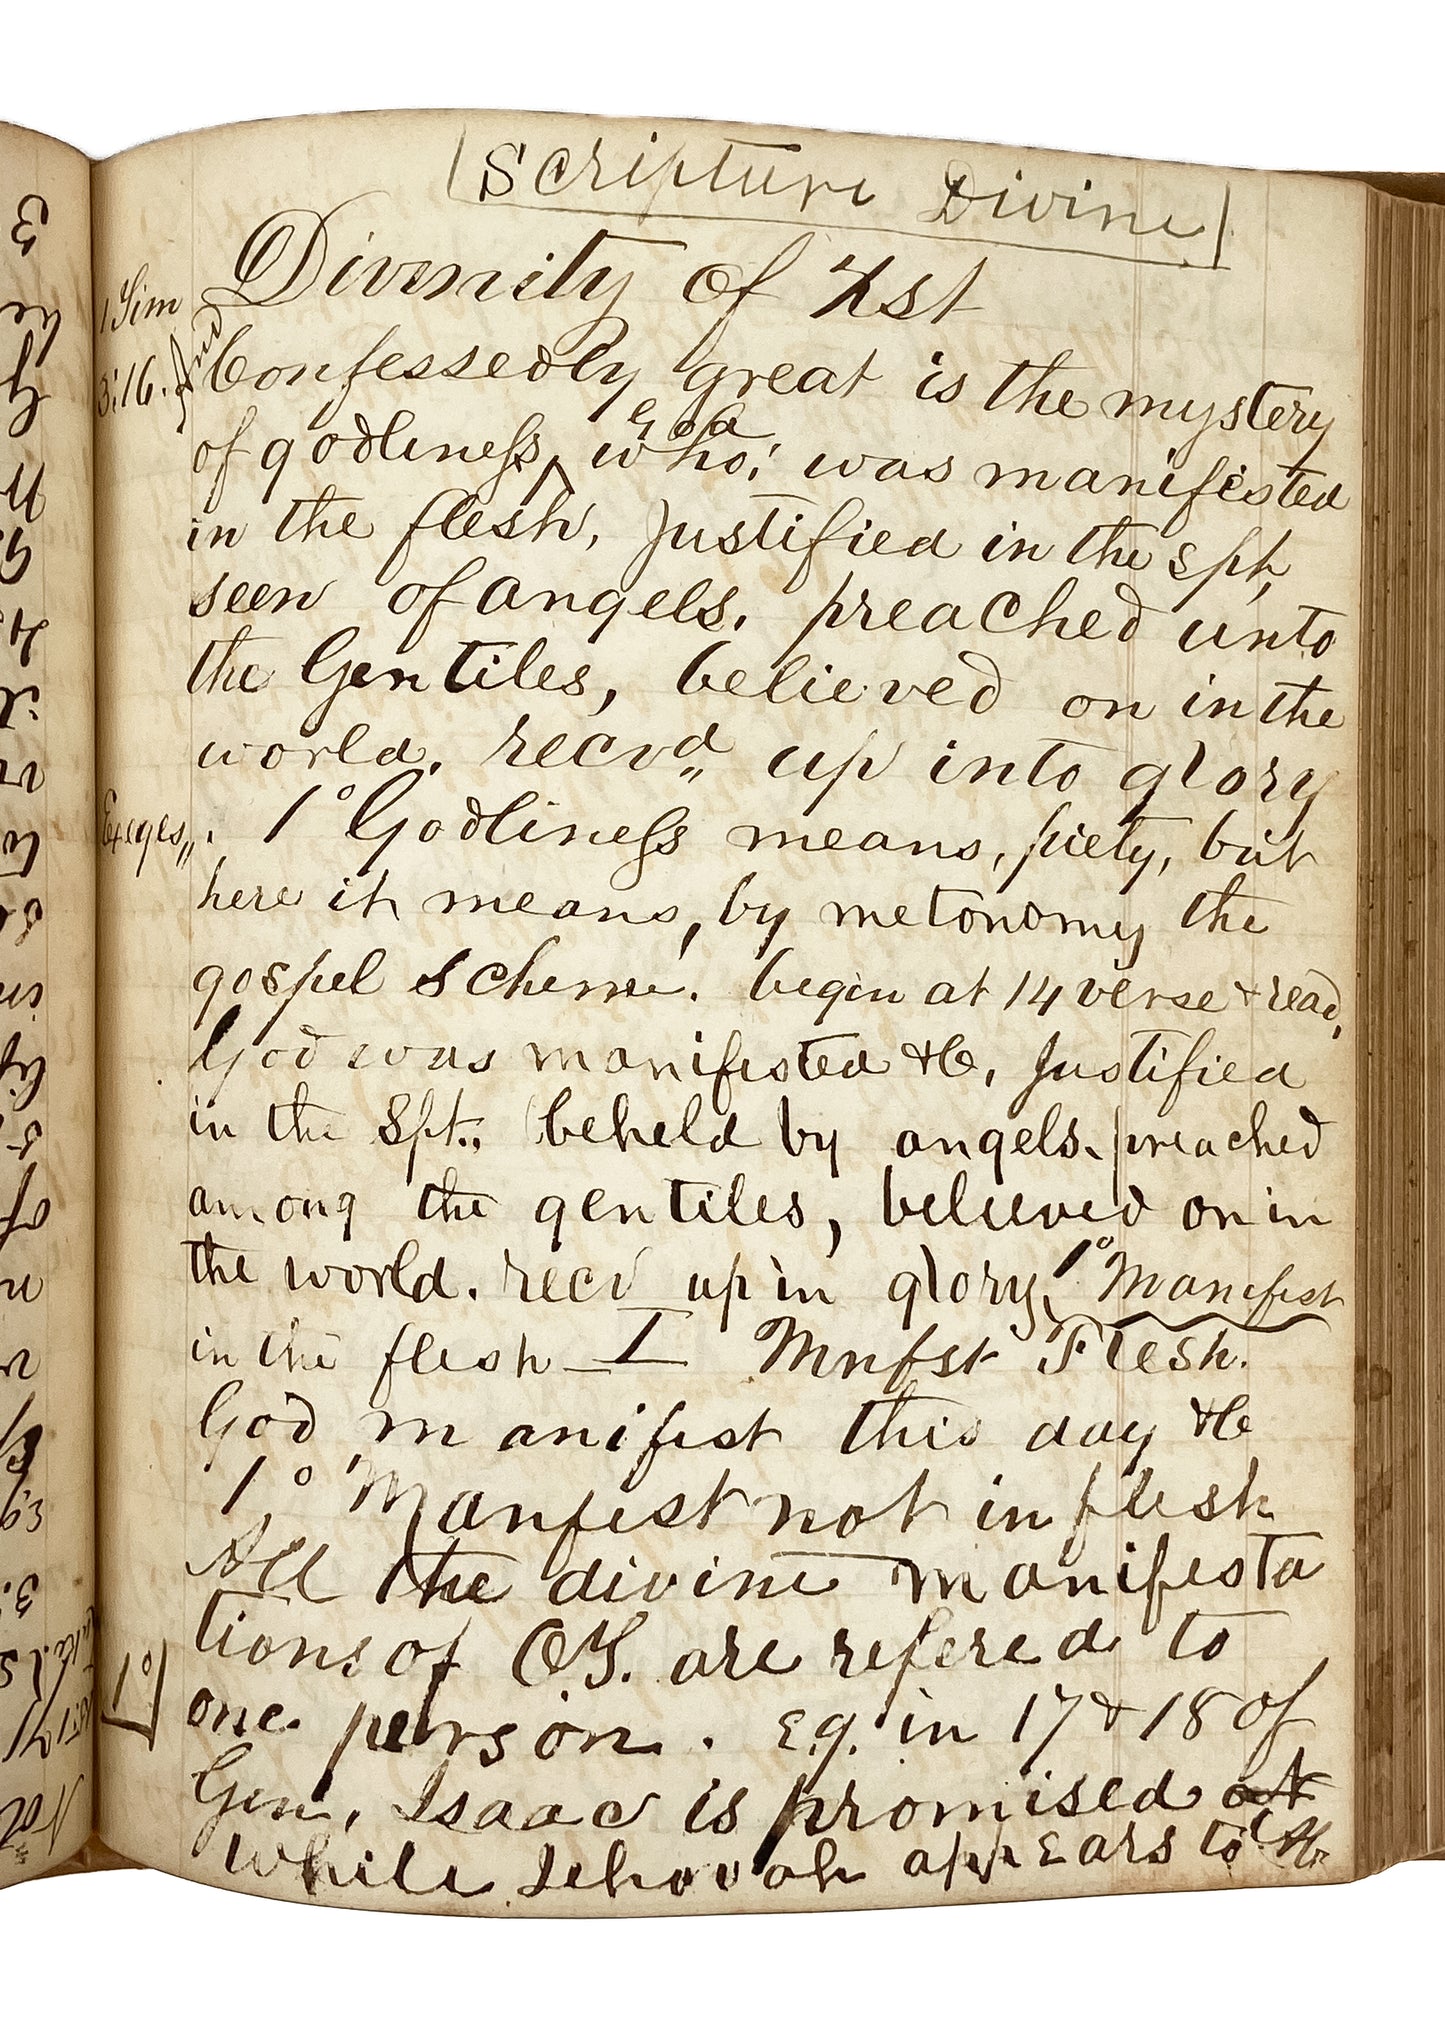 Scripture Divine
Divinity of Xst
1 Tim
3:16. And Confessedly great is the mystery
of godliness, who: was manifested
in the flesh, justified in the spt,
seen of angels, preached unto
the Gentiles, believed on in the
world, recvd up into glory
Exeges,,. 1° Godliness means, piety, but
here it means, by metonomy the
gospel scheme. begin at 14 verse & read,
God was manifested &C, justified
in the Spt., beheld by angels, preached
among the gentiles, believed on in
the world. recd up in glory, 1° Manifest
in the flesh – I Mnfst Flesh.
God manifest this day &C
1° Manfest not in flesh
All the divine manifesta
tions of O.T. are refered to
1° one person. E.g. in 17 & 18 of
Gen, Isaac is promised at
while Jehovah appears to